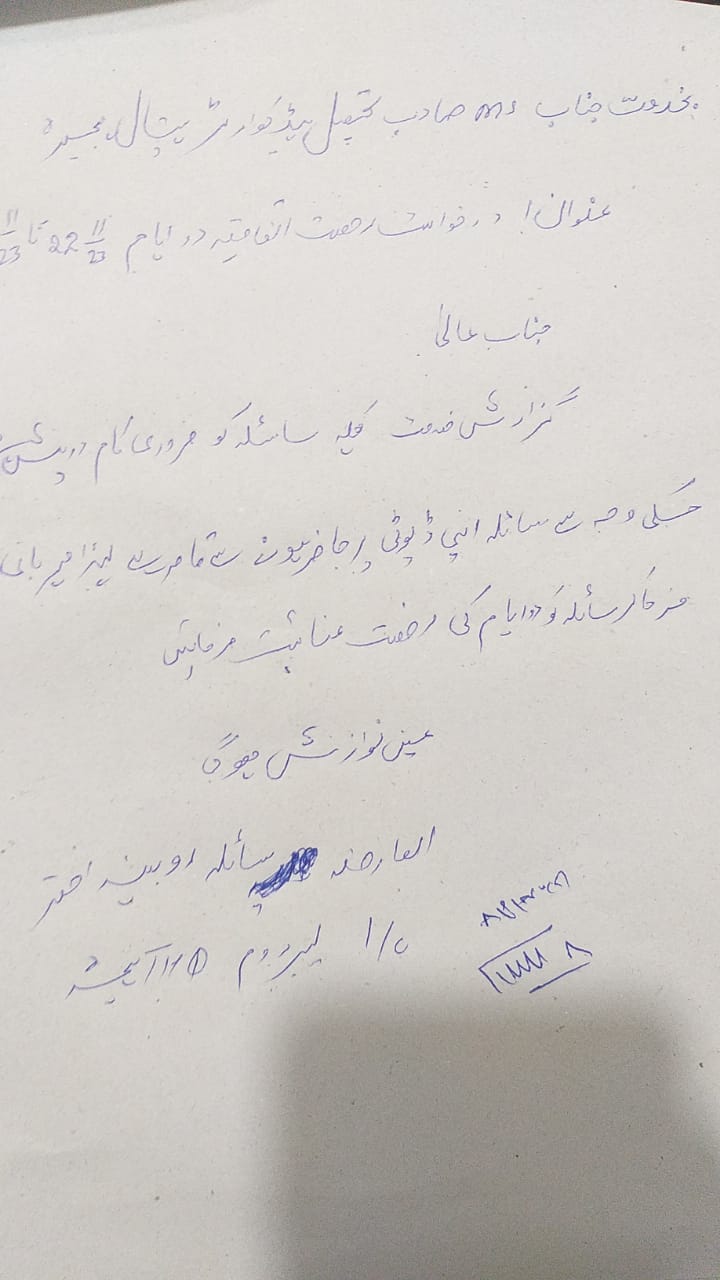 بخدمت جناب MS صاحب تحصیل ہیڈ کوارٹر ہسپتال
عنوان! درخواست رخصت اتفاقیہ دو ایام 22 11/23 تا 11/23
جناب عالیٰ
گزارش خدمت کہ سائلہ کو ضروری کام درپیش
جسکی وجہ سے سائلہ اپنی ڈیوٹی پر حاضر ہونے سے قاصر ہے لہذا مہربانی
فرما کر سائلہ کو دو ایام کی رخصت عنائیت فرمائیں
عین نوازش ہوگی
العارضہ سائلہ روبینہ اختر
I/C لیبر روم